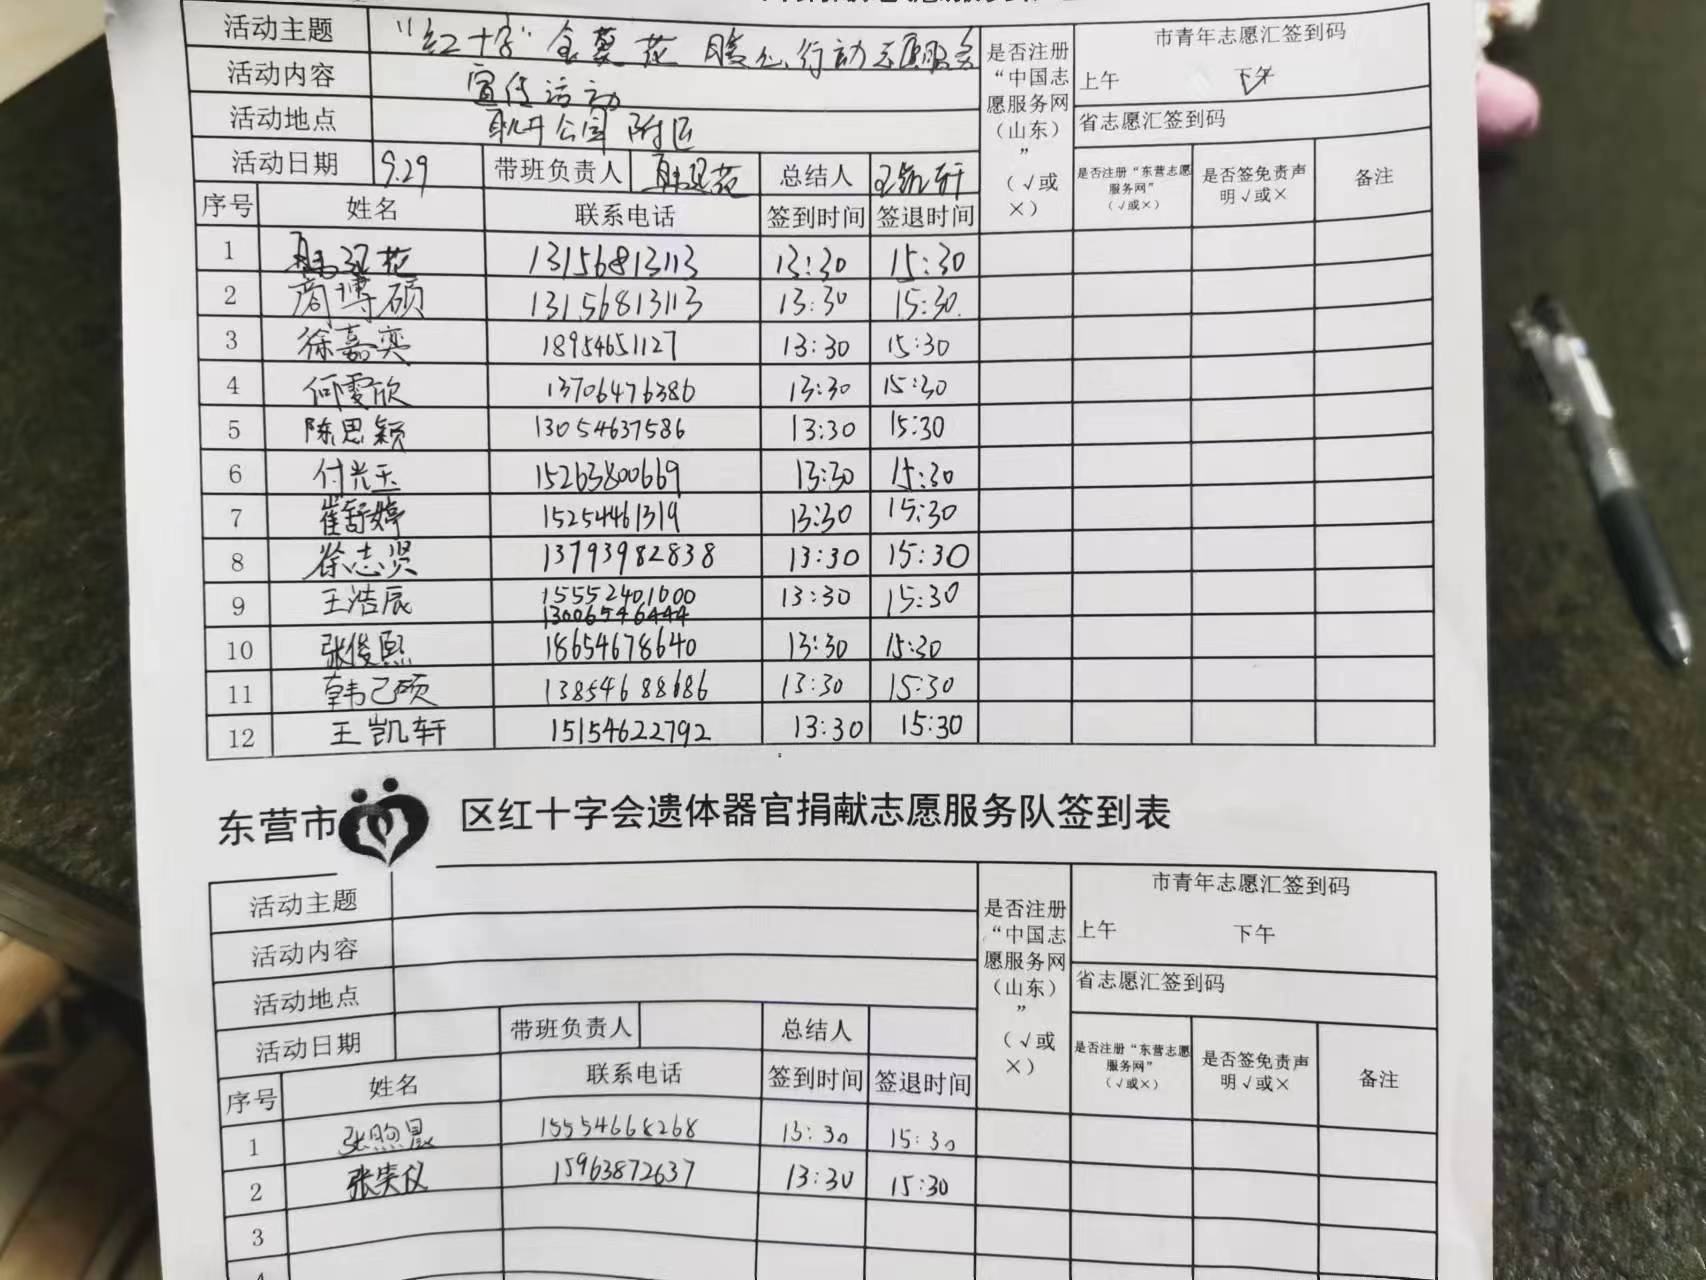 活动主题 "红十字"金葵花 暖心行动志愿服务
活动内容 宣传活动
活动地点 耿井公园 附近
活动日期 9.29 带班负责人 总结人 王凯轩
是否注册“中国志愿服务网（山东）”（√或×）
市青年志愿汇签到码
上午 下午 √
省志愿汇签到码
是否注册“东营志愿服务网”（√或×） 是否签免责声明√或× 备注
序号 姓名 联系电话 签到时间 签退时间
1 13156813113 13:30 15:30
2 商博硕 13156813113 13:30 15:30
3 徐嘉奕 18954651127 13:30 15:30
4 何雯欣 13706476386 13:30 15:30
5 陈思颖 13054637586 13:30 15:30
6 付光玉 15263800669 13:30 15:30
7 崔舒婷 15254461319 13:30 15:30
8 徐志贤 13793982838 13:30 15:30
9 王浩辰 15552401000 13:30 15:30
13006546444
10 张俊熙 18654678640 13:30 15:30
11 韩己硕 13854688686 13:30 15:30
12 王凯轩 15154622792 13:30 15:30
东营市 区红十字会遗体器官捐献志愿服务队签到表
活动主题
活动内容
活动地点
活动日期 带班负责人 总结人
是否注册“中国志愿服务网（山东）”（√或×）
市青年志愿汇签到码
上午 下午
省志愿汇签到码
是否注册“东营志愿服务网”（√或×） 是否签免责声明√或× 备注
序号 姓名 联系电话 签到时间 签退时间
1 张煦晨 15554668268 13:30 15:30
2 张荣仪 15963872637 13:30 15:30
3
4